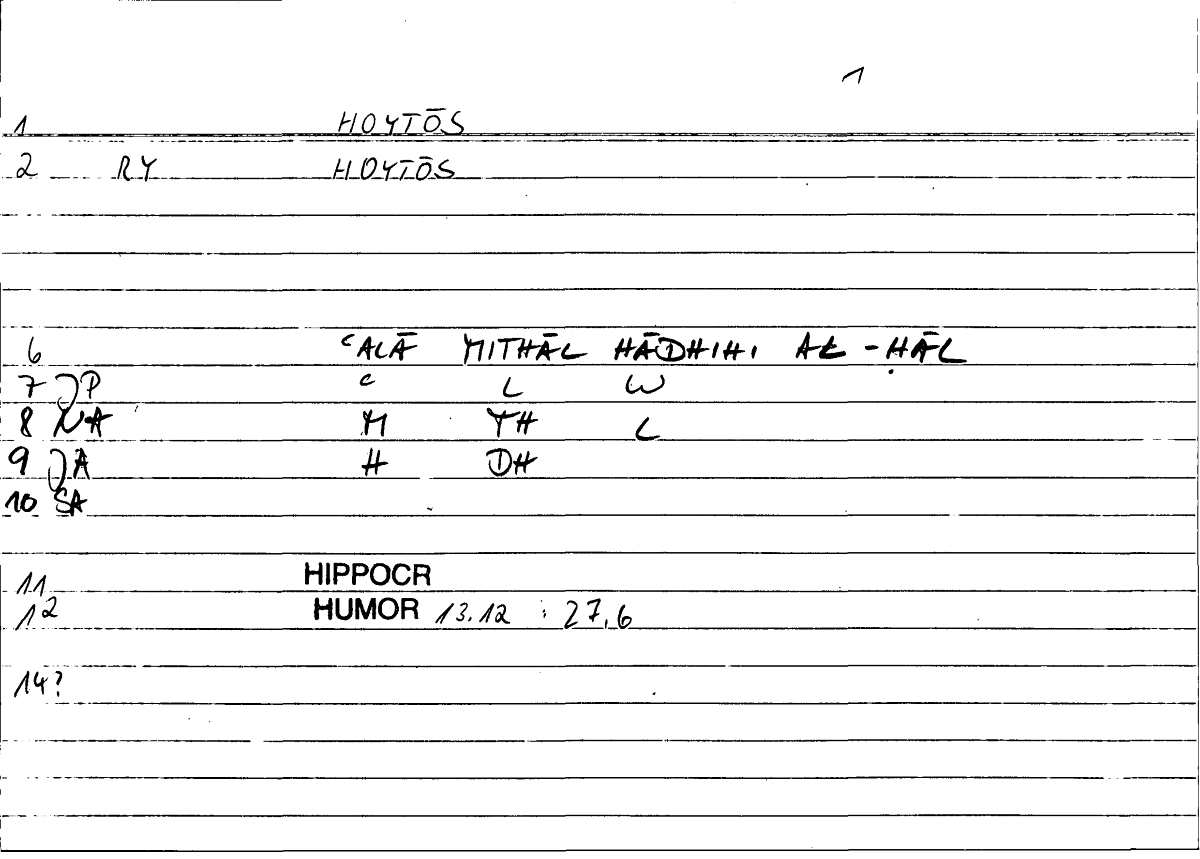 1
1 HOYTŌS
2 RY HOYTŌS
6 ʿALĀ MITHĀL HĀDHIHI AL-ḤĀL
7 JP ʿ L W
8 NA M TH L
9 JA H DH
10 SA
11 HIPPOCR
12 HUMOR 13.12 : 27,6
14?